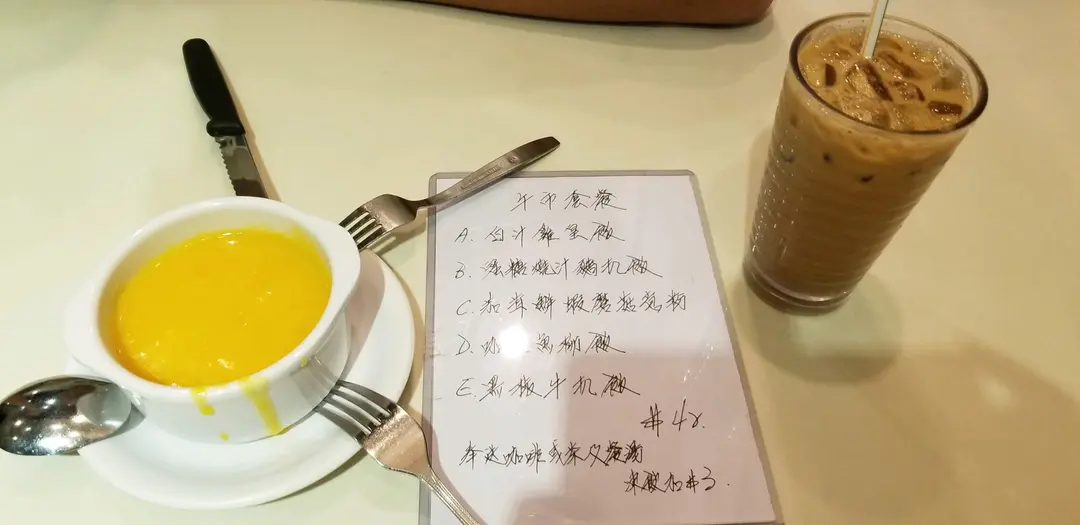 午市套餐
A. 白汁雞皇飯
B. 燒汁扒飯
C. 鮮蝦蘑菇意粉
D. 咖魚柳飯
E. 黑椒牛扒飯
$42.
奉送咖啡或茶及餐湯
凍飲加$3.